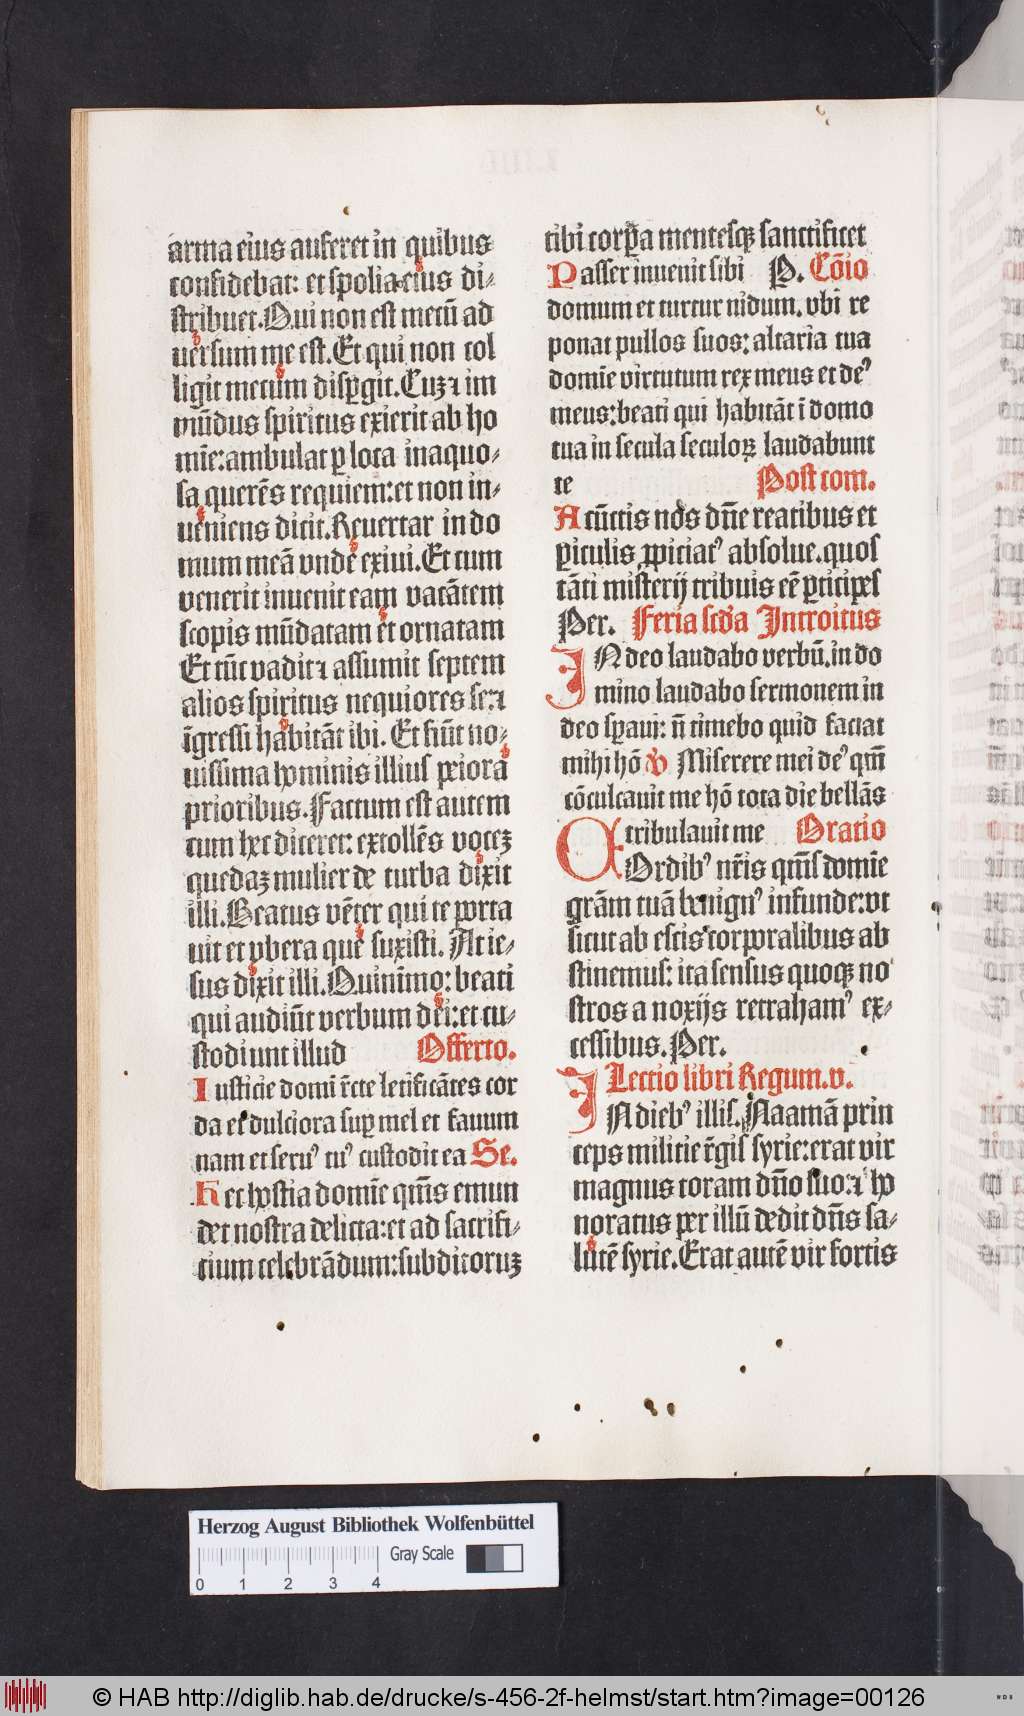 arma eius auferet in quibus
confidebat: et spolia eius di-
stribuet. Qui non est mecū ad
uersum me est. Et qui non col
ligit mecum disꝑgit. Cuꝫ ⁊ im
mūdus spiritus exierit ab ho
mīe: ambulat ꝑ loca inaquo-
sa querēs requiem: et non in-
ueniens dicit. Reuertar in do
mum meā vnde exiui. Et cum
venerit inuenit eam vacātem
scopis mūdatam et ornatam
Et tūc vadit ⁊ assumit septem
alios spiritus nequiores se: ⁊
īgressi habitāt ibi. Et fiūt no-
uissima hominis illius peiora
prioribus. Factum est autem
cum hec diceret: extollēs voceꝫ
quedaꝫ mulier de turba dixit
illi. Beatus vēter qui te porta
uit et vbera que suxisti. At ie-
sus dixit illi. Quinīmo: beati
qui audiūt verbum dei: et cu-
stodiunt illud Offerto.
Iusticie domī rēcte letificātes cor
da et dulciora suꝑ mel et fauum
nam et seruꝰ tuꝰ custodit ea Se.
Hec hostia domīe qm̄s emun
det nostra delicta: et ad sacrifi-
cium celebrādum: subditoruꝫ
tibi corꝑa mentesqꝫ sanctificet
Passer inuenit sibi P. Cōio
domum et turtur nidum. vbi re
ponat pullos suos: altaria tua
domīe virtutum rex meus et deꝰ
meus: beati qui habitāt ī domo
tua in secula seculoꝝ laudabunt
te Post com.
A cūctis nōs dn̄e reatibus et
ꝑiculis ꝓpiciatꝰ absolue. quos
tāti misterij tribuis eē ꝑticipes
Per. Feria scḋa Introitus
IN deo laudabo verbū. in do
mino laudabo sermonem in
deo sꝑaui: n̄ timebo quid faciat
mihi hō V Miserere mei deꝰ qm̄
cōculcauit me hō tota die bellās
tribulauit me Oratio
COrdibꝰ nr̄is qm̄s domīe
grām tuā benignꝰ infunde: vt
sicut ab escis corporalibus ab
stinemus: ita sensus quoqꝫ no
stros a noxijs retrahamꝰ ex-
cessibus. Per.
Lectio libri Regum. v.
IN diebꝰ illis. Naamā prin
ceps militie rēgis syrie: erat vir
magnus coram dn̄o suo: ⁊ ho
noratus per illū dedit dn̄s sa-
lutē syrie. Erat autē vir fortis
Herzog August Bibliothek Wolfenbüttel
Gray Scale
0 1 2 3 4
© HAB http://diglib.hab.de/drucke/s-456-2f-helmst/start.htm?image=00126